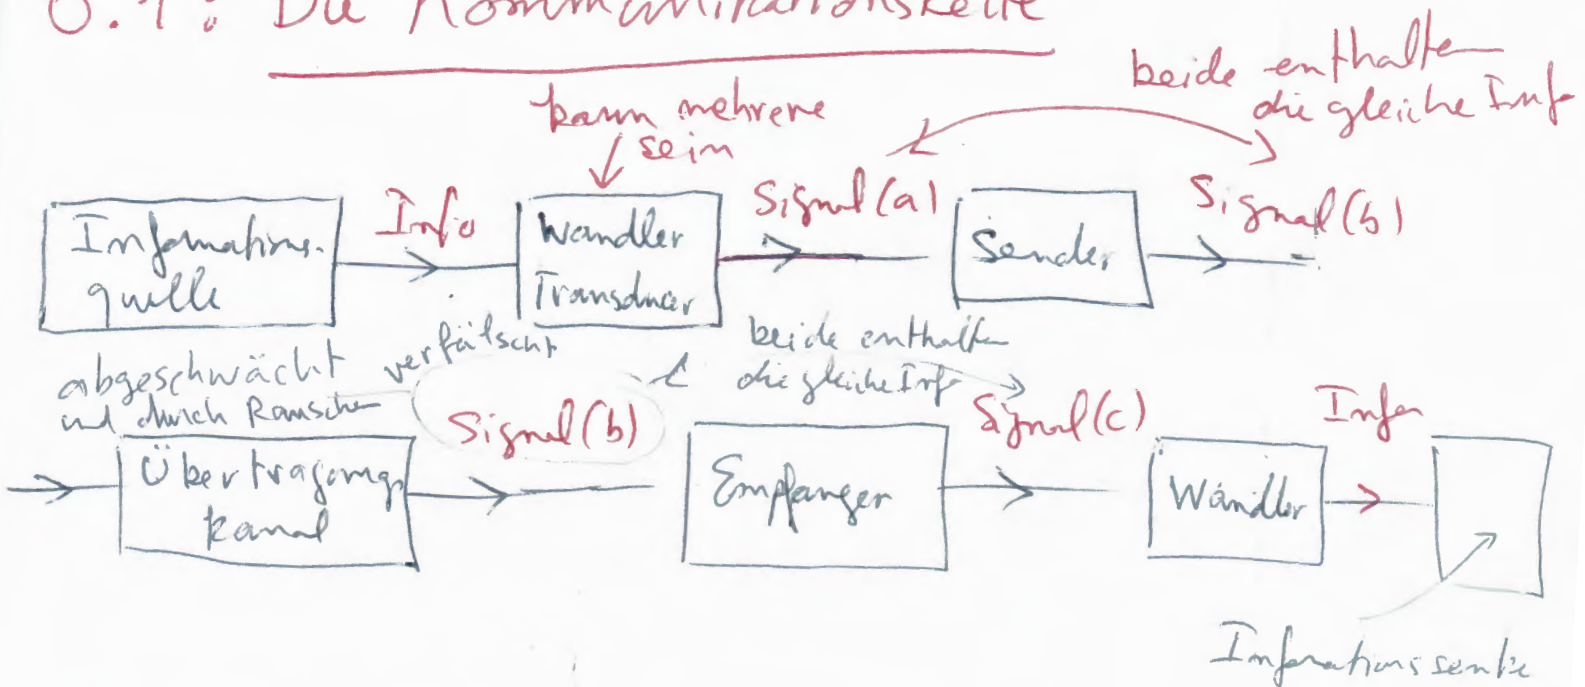 0.1: Die Kommunikationskette
beide enthalten
die gleiche Inf
kann mehrere
sein
Informations-
quelle
Info
Wandler
Transducer
Signal(a)
Sender
Signal(b)
abgeschwächt
und durch Rauschen
verfälscht
beide enthalten
die gleiche Inf
Übertragungs
kanal
Signal(b)
Empfänger
Signal(c)
Wandler
Info
Informationssenke